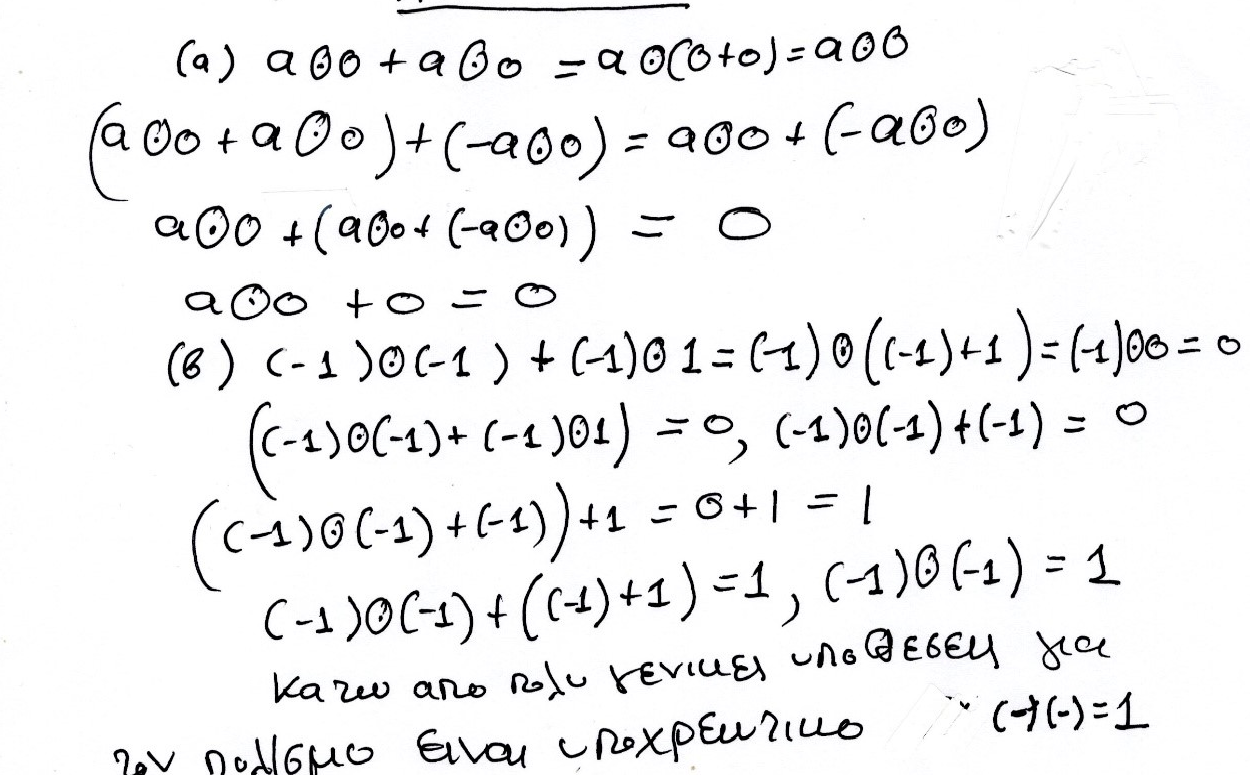 (α) a⊙0 + a⊙0 = a⊙(0+0) = a⊙0
(a⊙0 + a⊙0) + (-a⊙0) = a⊙0 + (-a⊙0)
a⊙0 + (a⊙0 + (-a⊙0)) = 0
a⊙0 + 0 = 0
(β) (-1)⊙(-1) + (-1)⊙1 = (-1)⊙((-1)+1) = (-1)⊙0 = 0
((-1)⊙(-1) + (-1)⊙1) = 0, (-1)⊙(-1) + (-1) = 0
((-1)⊙(-1) + (-1)) + 1 = 0 + 1 = 1
(-1)⊙(-1) + ((-1)+1) = 1, (-1)⊙(-1) = 1
κατω απο πολυ γενικες υποθεσεις για
τον πολ/σμο ειναι υποχρεωτικο " (-)(-)=1